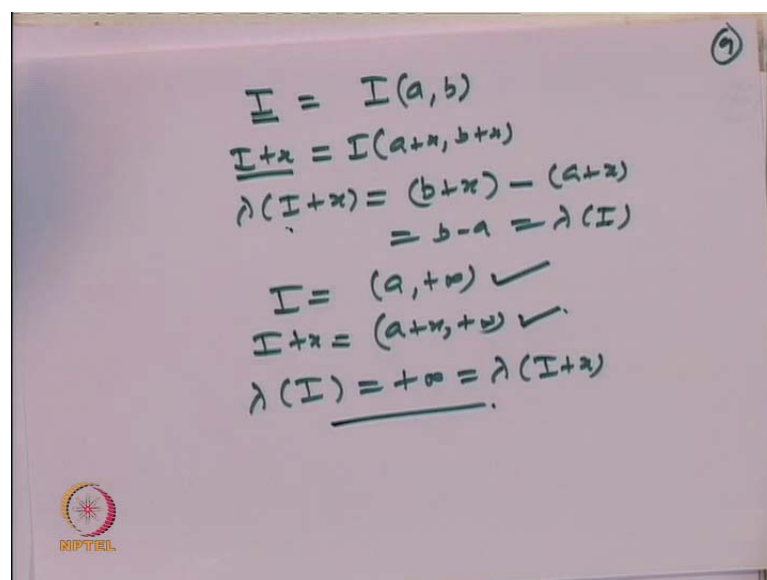 9
I = I(a, b)
I+x = I(a+x, b+x)
λ(I+x) = (b+x) - (a+x)
= b-a = λ(I)
I = (a, +∞) ✓
I+x = (a+x, +∞) ✓.
λ(I) = +∞ = λ(I+x)
NPTEL